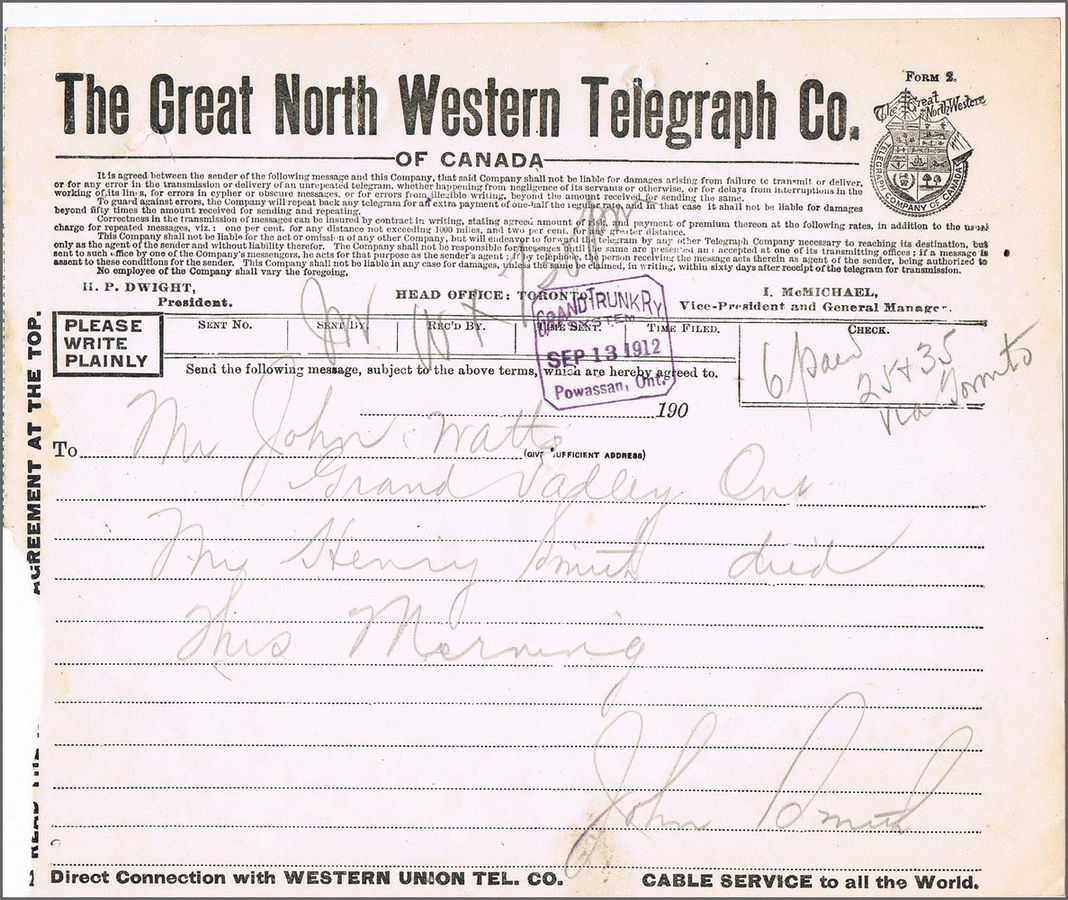 FORM 2.
The Great North Western Telegraph Co.
OF CANADA
The Great North Western
TELEGRAPH COMPANY OF CANADA
It is agreed between the sender of the following message and this Company, that said Company shall not be liable for damages arising from failure to transmit or deliver,
or for any error in the transmission or delivery of an unrepeated telegram, whether happening from negligence of its servants or otherwise, or for delays from interruptions in the
working of its lines, for errors in cypher or obscure messages, or for errors from illegible writing, beyond the amount received for sending the same.
To guard against errors, the Company will repeat back any telegram for an extra payment of one-half the regular rate, and in that case it shall not be liable for damages
beyond fifty times the amount received for sending and repeating.
Correctness in the transmission of messages can be insured by contract in writing, stating agreed amount of risk, and payment of premium thereon at the following rates, in addition to the usual
charge for repeated messages, viz.: one per cent. for any distance not exceeding 1000 miles, and two per cent. for any greater distance.
This Company shall not be liable for the act or omission of any other Company, but will endeavor to forward the telegram by any other Telegraph Company necessary to reaching its destination, but
only as the agent of the sender and without liability therefor. The Company shall not be responsible for messages until the same are presented and accepted at one of its transmitting offices; if a message is
sent to such office by one of the Company's messengers, he acts for that purpose as the sender's agent; if by telephone, the person receiving the message acts therein as agent of the sender, being authorized to
assent to these conditions for the sender. This Company shall not be liable in any case for damages, unless the same be claimed, in writing, within sixty days after receipt of the telegram for transmission.
No employee of the Company shall vary the foregoing,
H. P. DWIGHT,
President.
HEAD OFFICE: TORONTO
I. McMICHAEL,
Vice-President and General Manager.
PLEASE
WRITE
PLAINLY
SENT NO. SENT BY. REC'D BY. TIME SENT. TIME FILED. CHECK.
730 Pm
GRAND TRUNK RY
SYSTEM
SEP 13 1912
Powassan, Ont.
6 paid
25+35
via Toronto
Send the following message, subject to the above terms, which are hereby agreed to.
190
To Mr John Watts
(GIVE SUFFICIENT ADDRESS)
Grand Valley Ont
Mr Henry Smith died
This Morning
John Smith
AGREEMENT AT THE TOP.
Direct Connection with WESTERN UNION TEL. CO.
CABLE SERVICE to all the World.